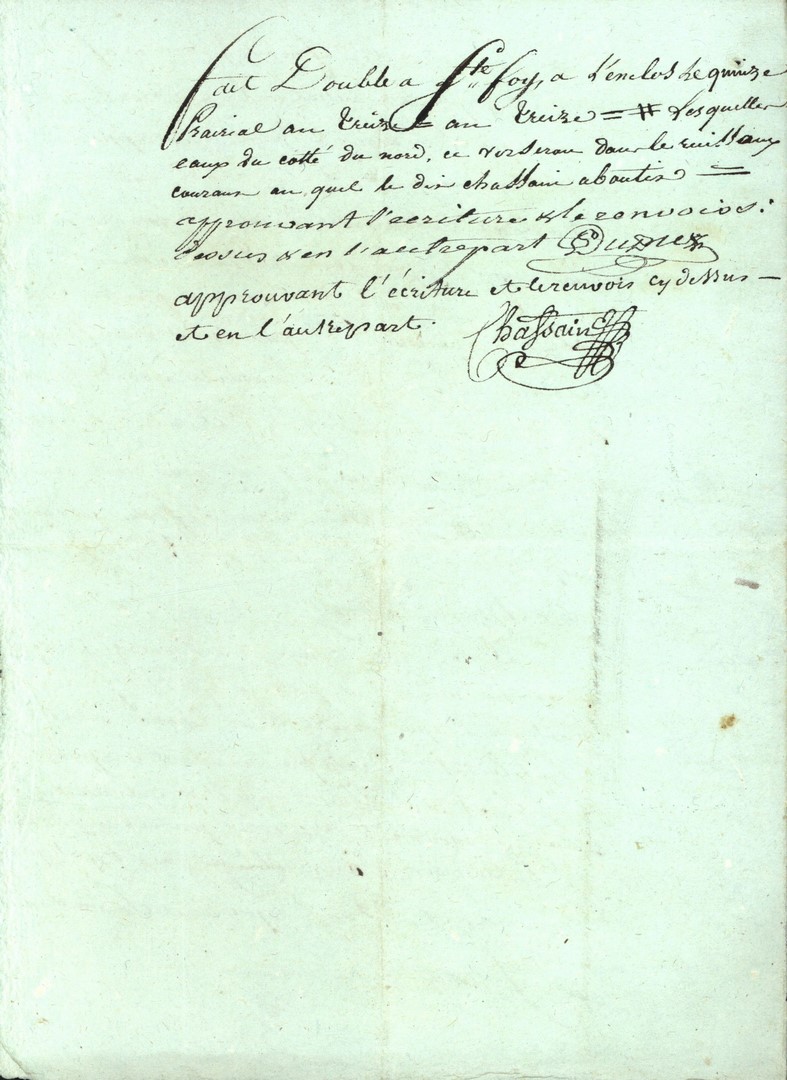 fait Double a Ste foy, a L'enclos Le quinze
Prairial an treize = an treize = # Lesquelles
eaux du cotté du nord, ce verseron dans le ruissaux
courans au quel le dis chassain aboutis =
approuvant l'ecriture & le renvoi ci
dessus & en l'autrepart
approuvant l'écriture et le renvois cy dessus —
et en l'autrepart.
Chassain